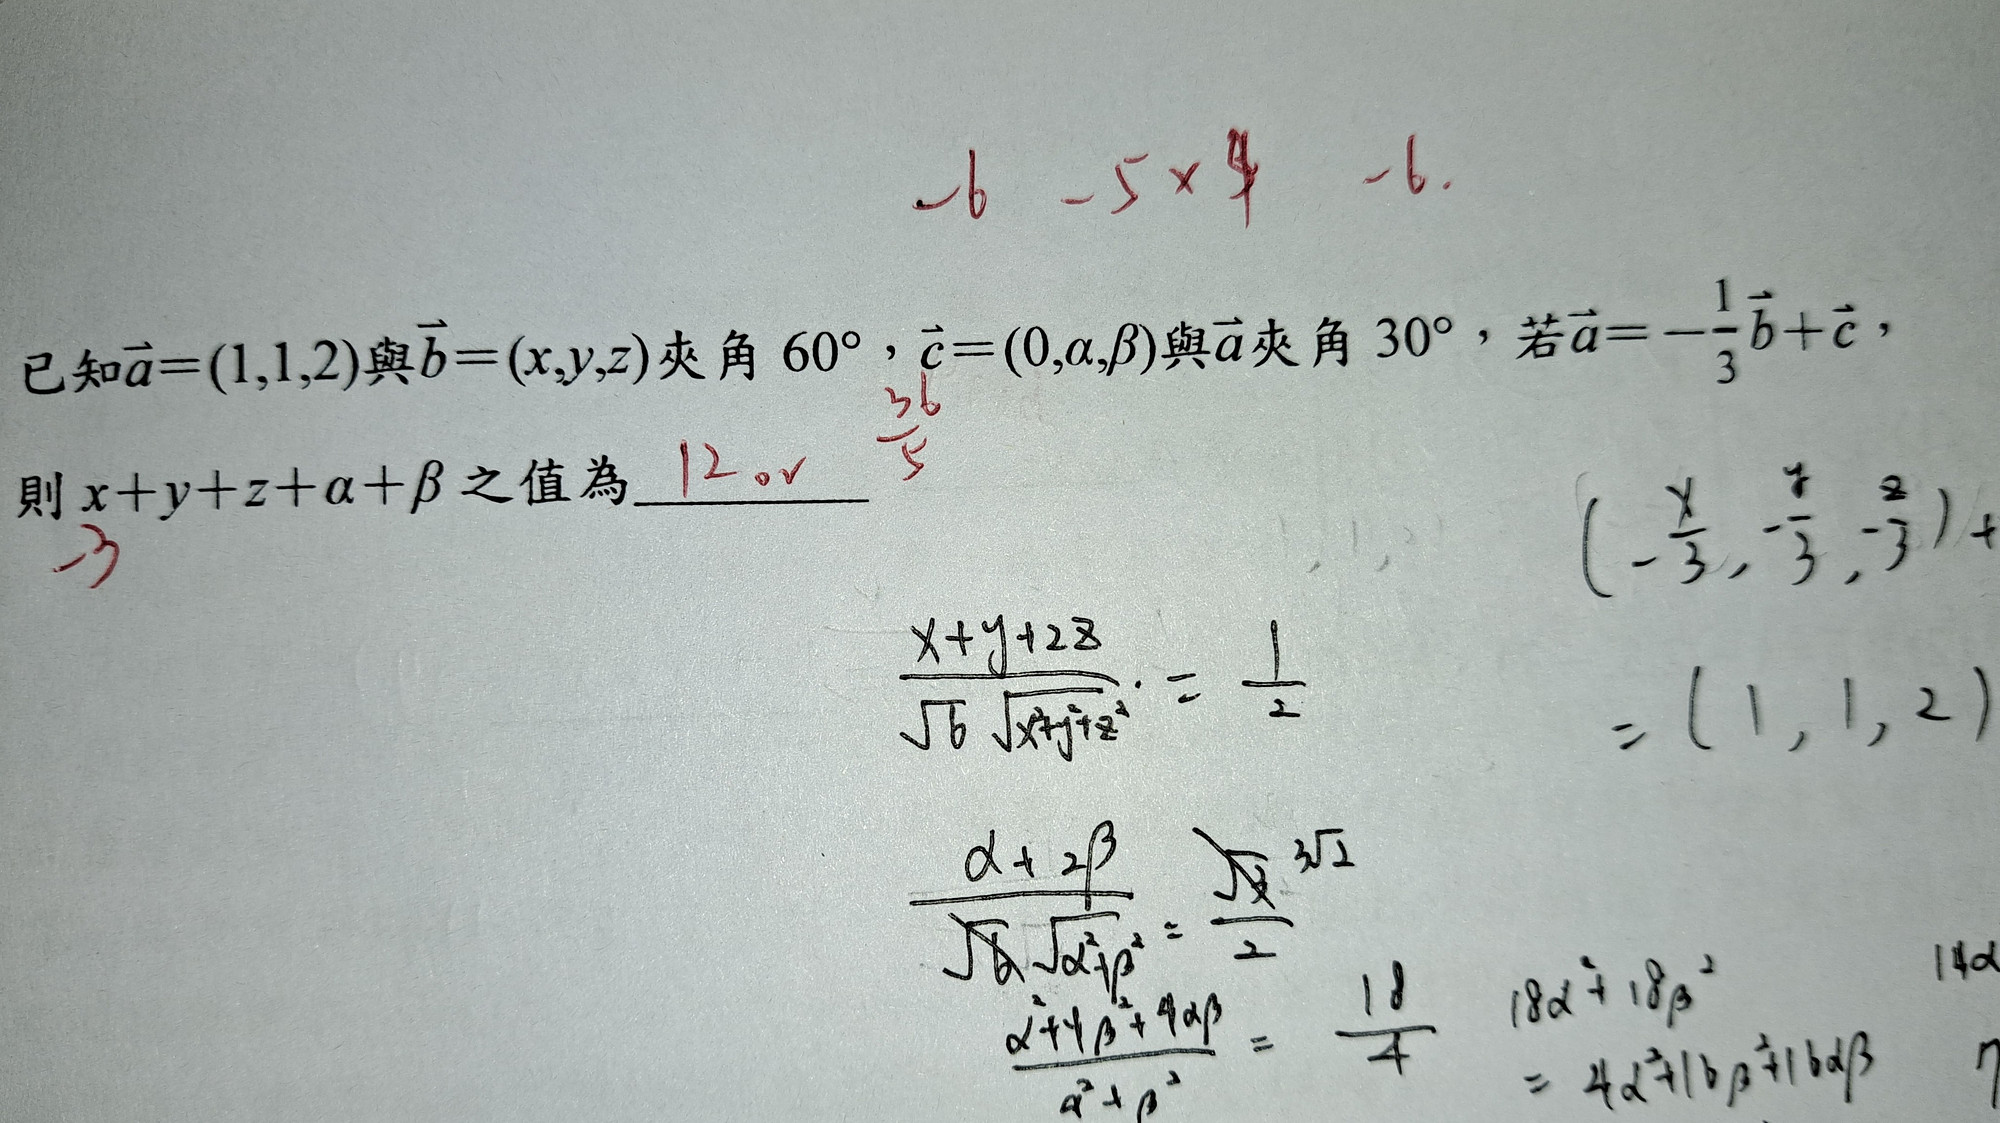 -6 -5×4 -6.
已知a⃗=(1,1,2)與b⃗=(x,y,z)夾角 60°，c⃗=(0,α,β)與a⃗夾角 30°，若a⃗=-1/3 b⃗+c⃗，
36/5
則 x+y+z+α+β 之值為 12 or
-3
(-x/3, -y/3, -z/3)+
(x+y+2z)/(√6 √(x²+y²+z²)) = 1/2
= (1, 1, 2)
(α+2β)/(√6 √(α²+β²)) = √3/2 3√2
(α²+4β²+4αβ)/(α²+β²) = 18/4
18α²+18β²
= 4α²+16β²+16αβ
14α
7